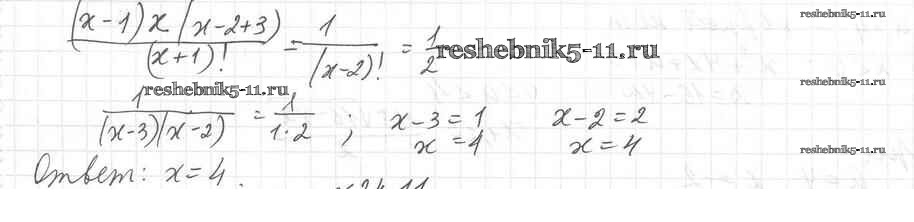 (x-1)x(x-2+3)/(x+1)! = 1/(x-2)! = 1/2
1/((x-3)(x-2)) = 1/(1·2) ; x-3=1 x-2=2
x=4 x=4
Ответ: x=4.
reshebnik5-11.ru
reshebnik5-11.ru
reshebnik5-11.ru
reshebnik5-11.ru
reshebnik5-11.ru